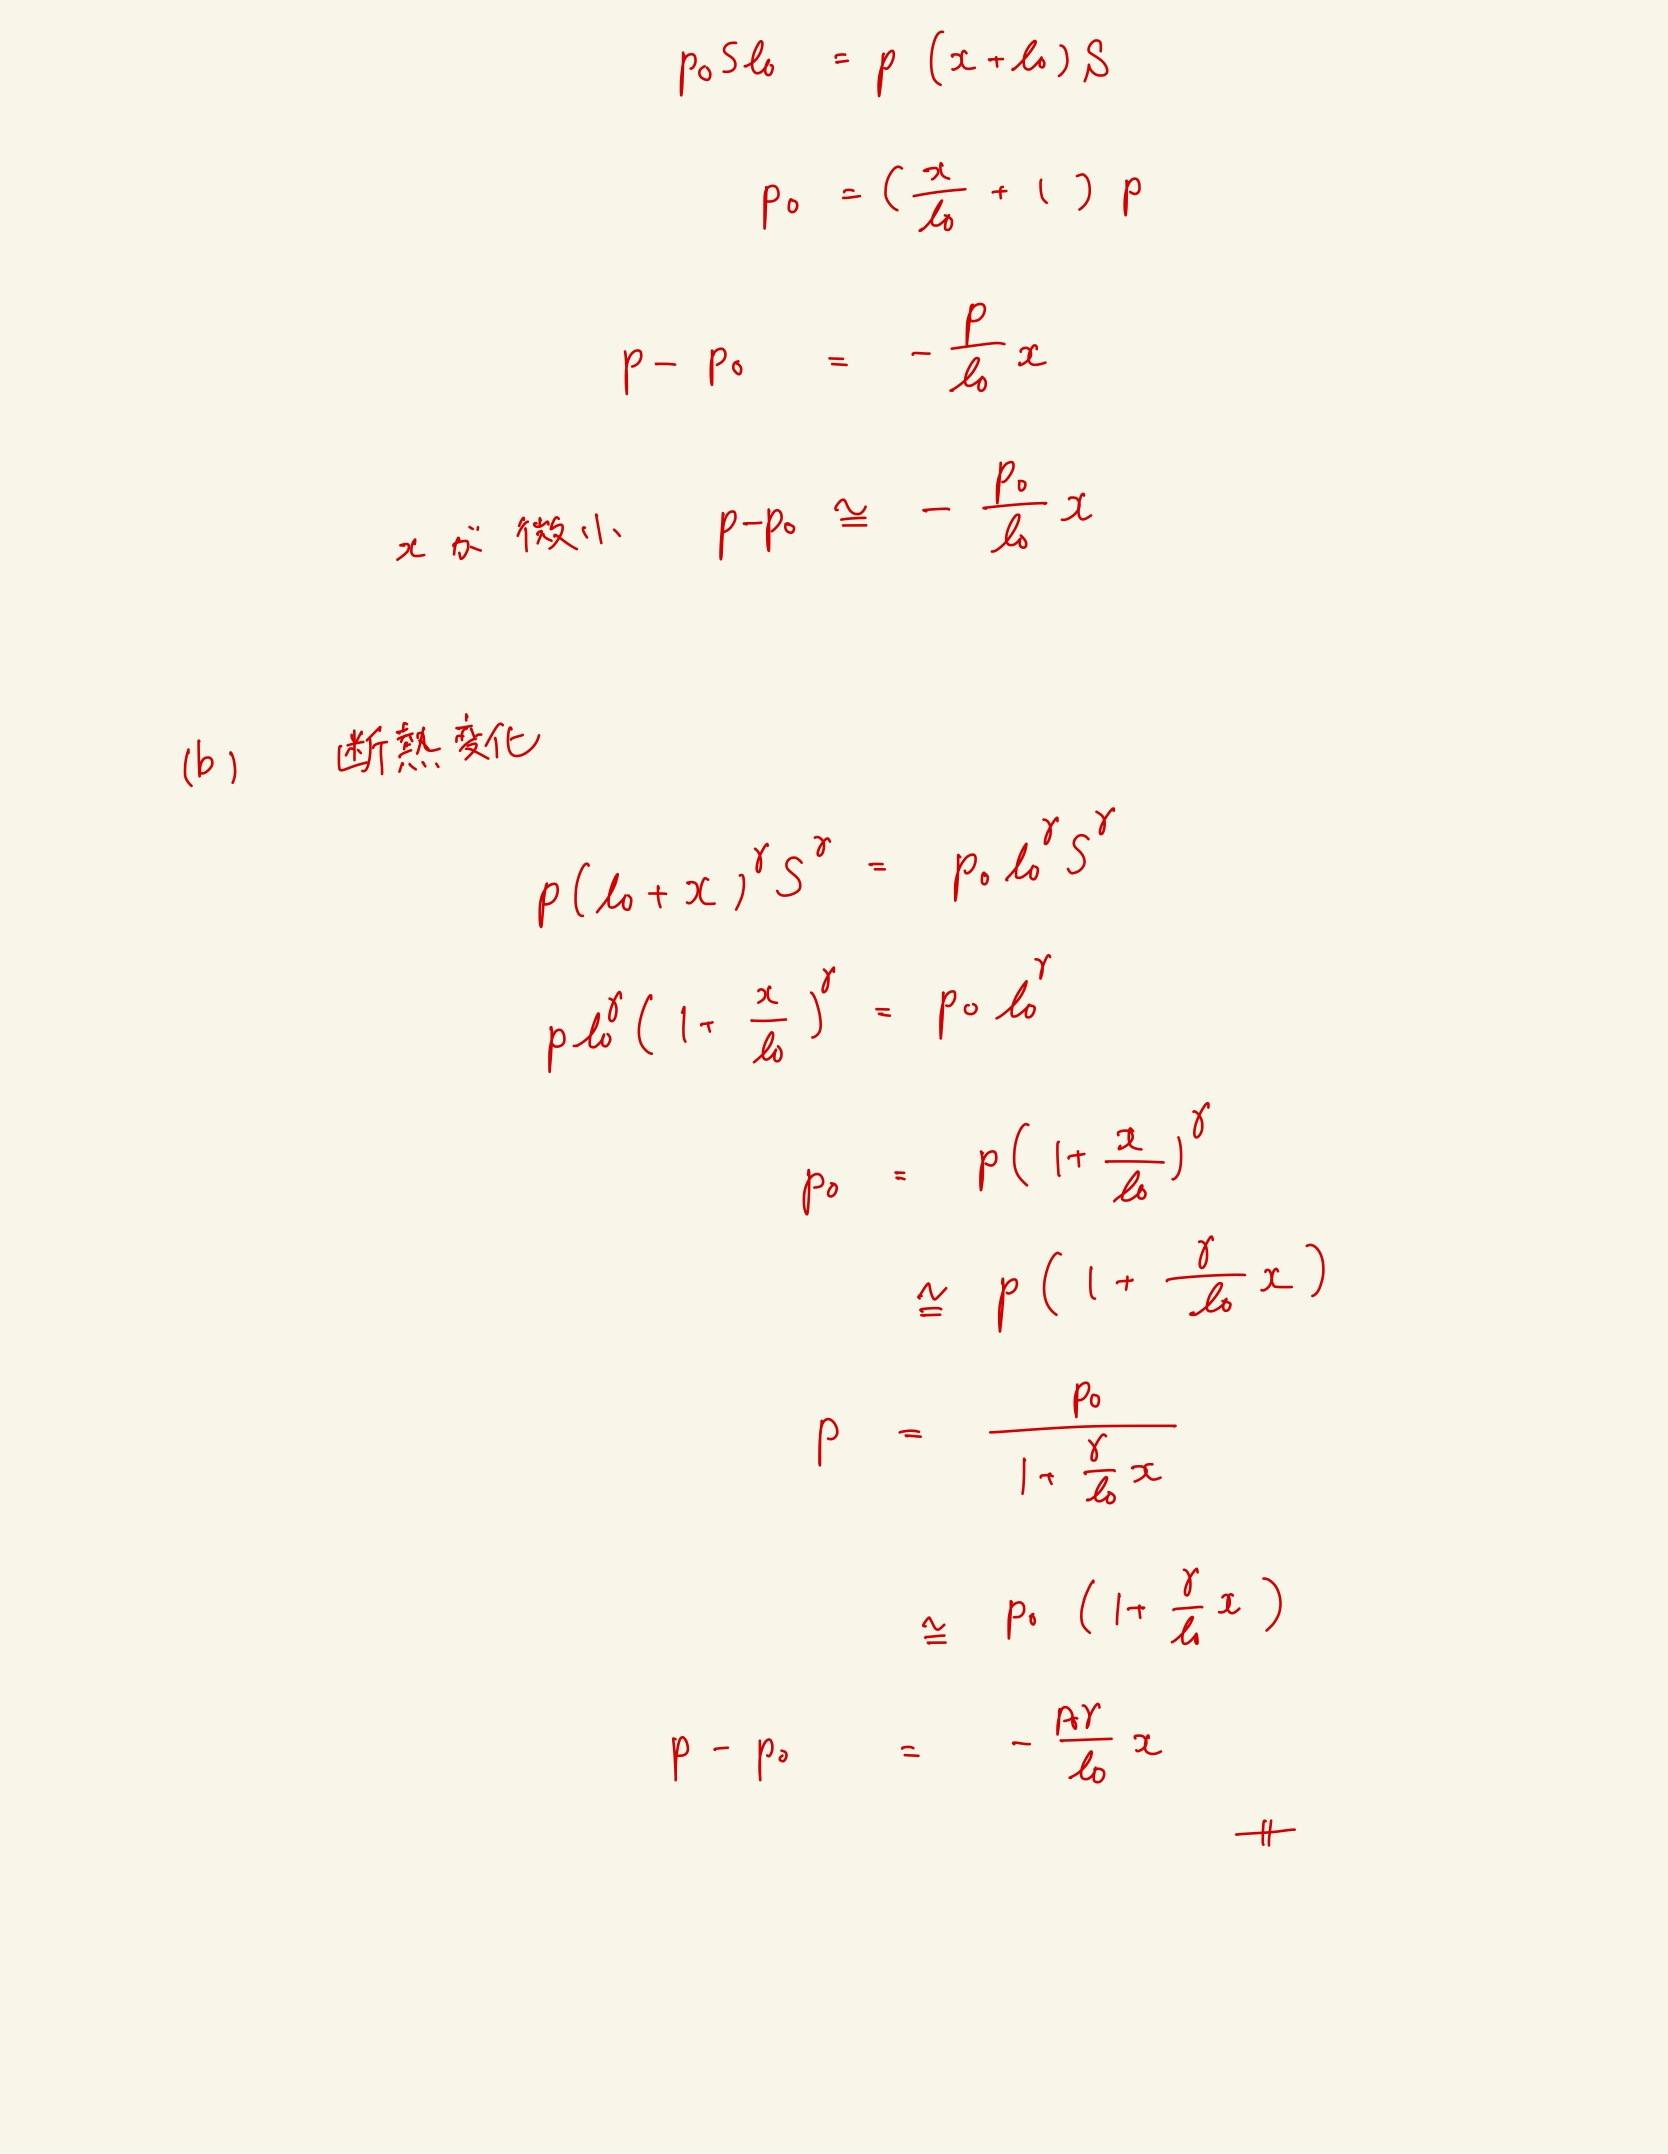 p₀Sl₀ = p (x+l₀)S
p₀ = (x/l₀ + 1) p
p - p₀ = - p/l₀ x
xが微小 p-p₀ ≅ - p₀/l₀ x
(b) 断熱変化
p(l₀+x)^γ S^γ = p₀ l₀^γ S^γ
p l₀^γ (1+ x/l₀)^γ = p₀ l₀^γ
p₀ = p(1+ x/l₀)^γ
≅ p(1+ γ/l₀ x)
p = p₀/(1+ γ/l₀ x)
≅ p₀ (1+ γ/l₀ x)
p - p₀ = - p₀γ/l₀ x